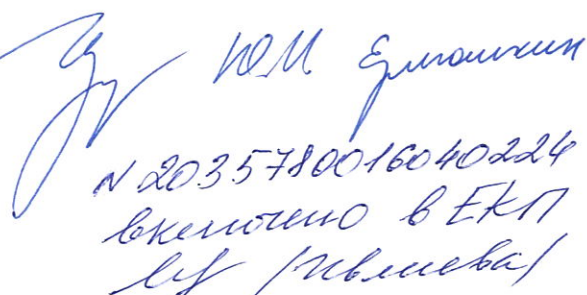 Ю.М. Ермошкин
N 203578001604022 4
включено в ЕКП
/Ивлиева/